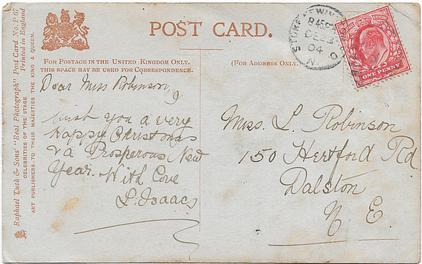 POST CARD.
FOR POSTAGE IN THE UNITED KINGDOM ONLY,
THIS SPACE MAY BE USED FOR CORRESPONDENCE.
(FOR ADDRESS ONLY.)
Dear Miss Robinson,
I wish you a very
happy Christmas
& a Prosperous New
Year. With Love
L. Isaacs
Miss. L. Robinson
150 Hertford Rd
Dalston
N. E.
Raphael Tuck & Sons' "Real Photograph" Post Card No.
CELEBRITIES OF THE STAGE
Printed in England
ART PUBLISHERS TO THEIR MAJESTIES THE KING & QUEEN.
STOKE NEWINGTON
8.45 PM
DE 23
04
N
ONE PENNY